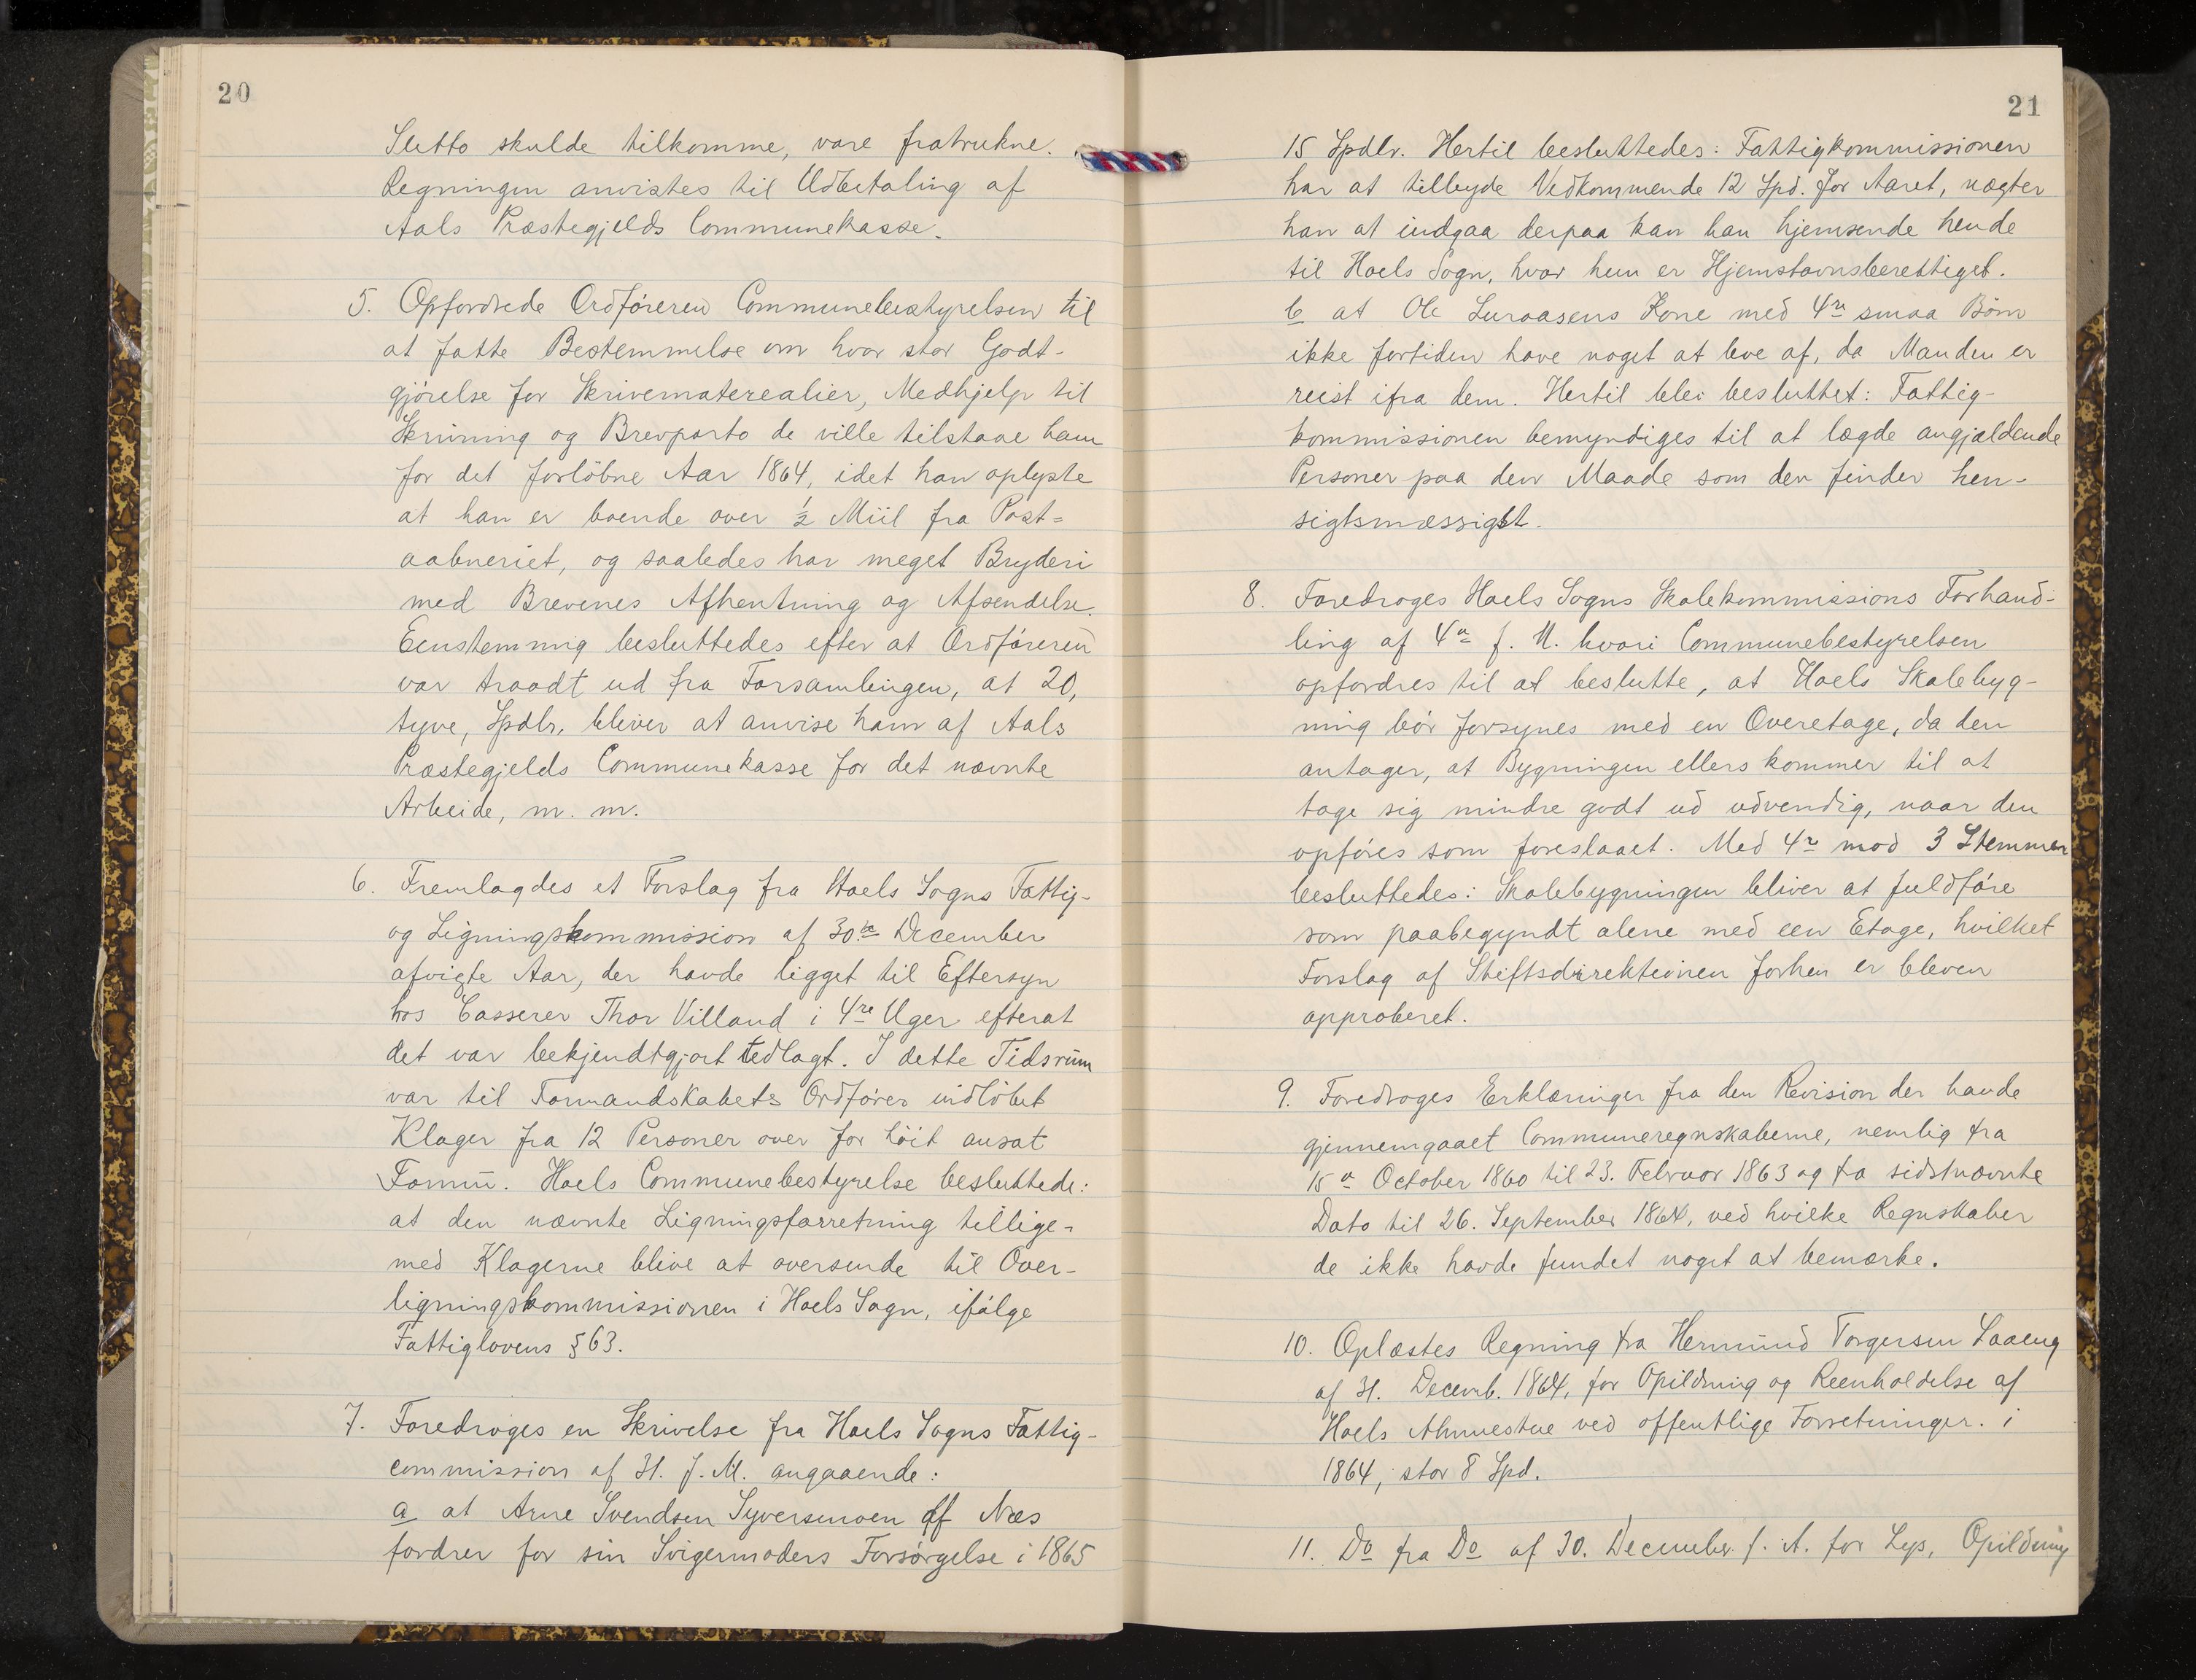 20
Slutto skulde tilkomme, vare fratrukne.
Regningen anvistes til Udbetaling af
Aals Præstegjelds Communekasse.
5. Opfordrede Ordføreren Communebestyrelsen til
at fatte Bestemmelse om hvor stor Godt-
gjørelse for Skrivematerealier, Medhjelp til
Skrivning og Brevporto de ville tilstaae ham
for det forløbne Aar 1864, idet han oplyste
at han er boende over ½ Miil fra Post=
aabneriet, og saaledes har meget Bryderi
med Brevenes Afhentning og Afsendelse.
Eenstemmig besluttedes efter at Ordføreren
var traadt ud fra Forsamlingen, at 20,
tyve, Spdlr. bliver at anvise ham af Aals
Præstegjelds Communekasse for det nævnte
Arbeide, m. m.
6. Fremlagdes et Forslag fra Hoels Sogns Fattig-
og Ligningskommission af 30te December
afvigte Aar, der havde ligget til Eftersyn
hos Casserer Thor Villand i 4re Uger efterat
det var bekjendtgjort tedlagt. I dette Tidsrum
var til Formandskabets Ordfører indløbet
Klager fra 12 Personer over for høit ansat
Formū. Hoels Communebestyrelse besluttede:
at den nævnte Ligningsforretning tillige=
med Klagerne blive at oversende til Over-
ligningskommissionen i Hoels Sogn, ifølge
Fattiglovens §63.
7. Foredroges en Skrivelse fra Hoels Sogns Fattig-
commission af 31. f. M. angaaende:
a at Arne Svendsen Syversmoen af Næs
fordrer for sin Svigermoders Forsørgelse i 1865
21
15 Spdlr. Hertil besluttedes: Fattigkommissionen
har at tilbyde Vedkommende 12 Spd. for Aaret, nægter
han at indgaa derpaa kan han hjemsende hende
til Hoels Sogn, hvor hun er Hjemstavnsberettiget.
b at Ole Luraasens Kone med 4re smaa Børn
ikke fortiden have noget at leve af, da Manden er
reist ifra dem. Hertil blev besluttet: Fattig-
kommissionen bemyndiges til at lægde angjældende
Personer paa den Maade som den finder hen-
sigtsmæssigst.
8. Foredroges Hoels Sogns Skolekommissions Forhand-
ling af 4a f. M. hvori Communebestyrelsen
opfordres til at beslutte, at Hoels Skolebyg-
ning bør forsynes med en Overetage, da den
antager, at Bygningen ellers kommer til at
tage sig mindre godt ud udvendig, naar den
opføres som foreslaaet. Med 4re mod 3 Stemmer
besluttedes: Skolebygningen bliver at fuldføre
som paabegyndt alene med een Etage, hvilket
Forslag af Stiftsdirektionen forhen er bleven
approberet.
9. Foredroges Erklæringer fra den Revision der havde
gjennemgaaet Communeregnskaberne, nemlig fra
15a October 1860 til 23. Februar 1863 og fra sidstnævnte
Dato til 26. September 1864, ved hvilke Regnskaber
de ikke havde fundet noget at bemærke.
10. Oplæstes Regning fra Hermund Torgersen Laaeng
af 31. Decemb. 1864, for Opildning og Reenholdelse af
Hoels Almuestue ved offentlige Forretninger. i
1864, stor 8 Spd.
11. Do fra Do af 30. December f. A. for Lys, Opildning